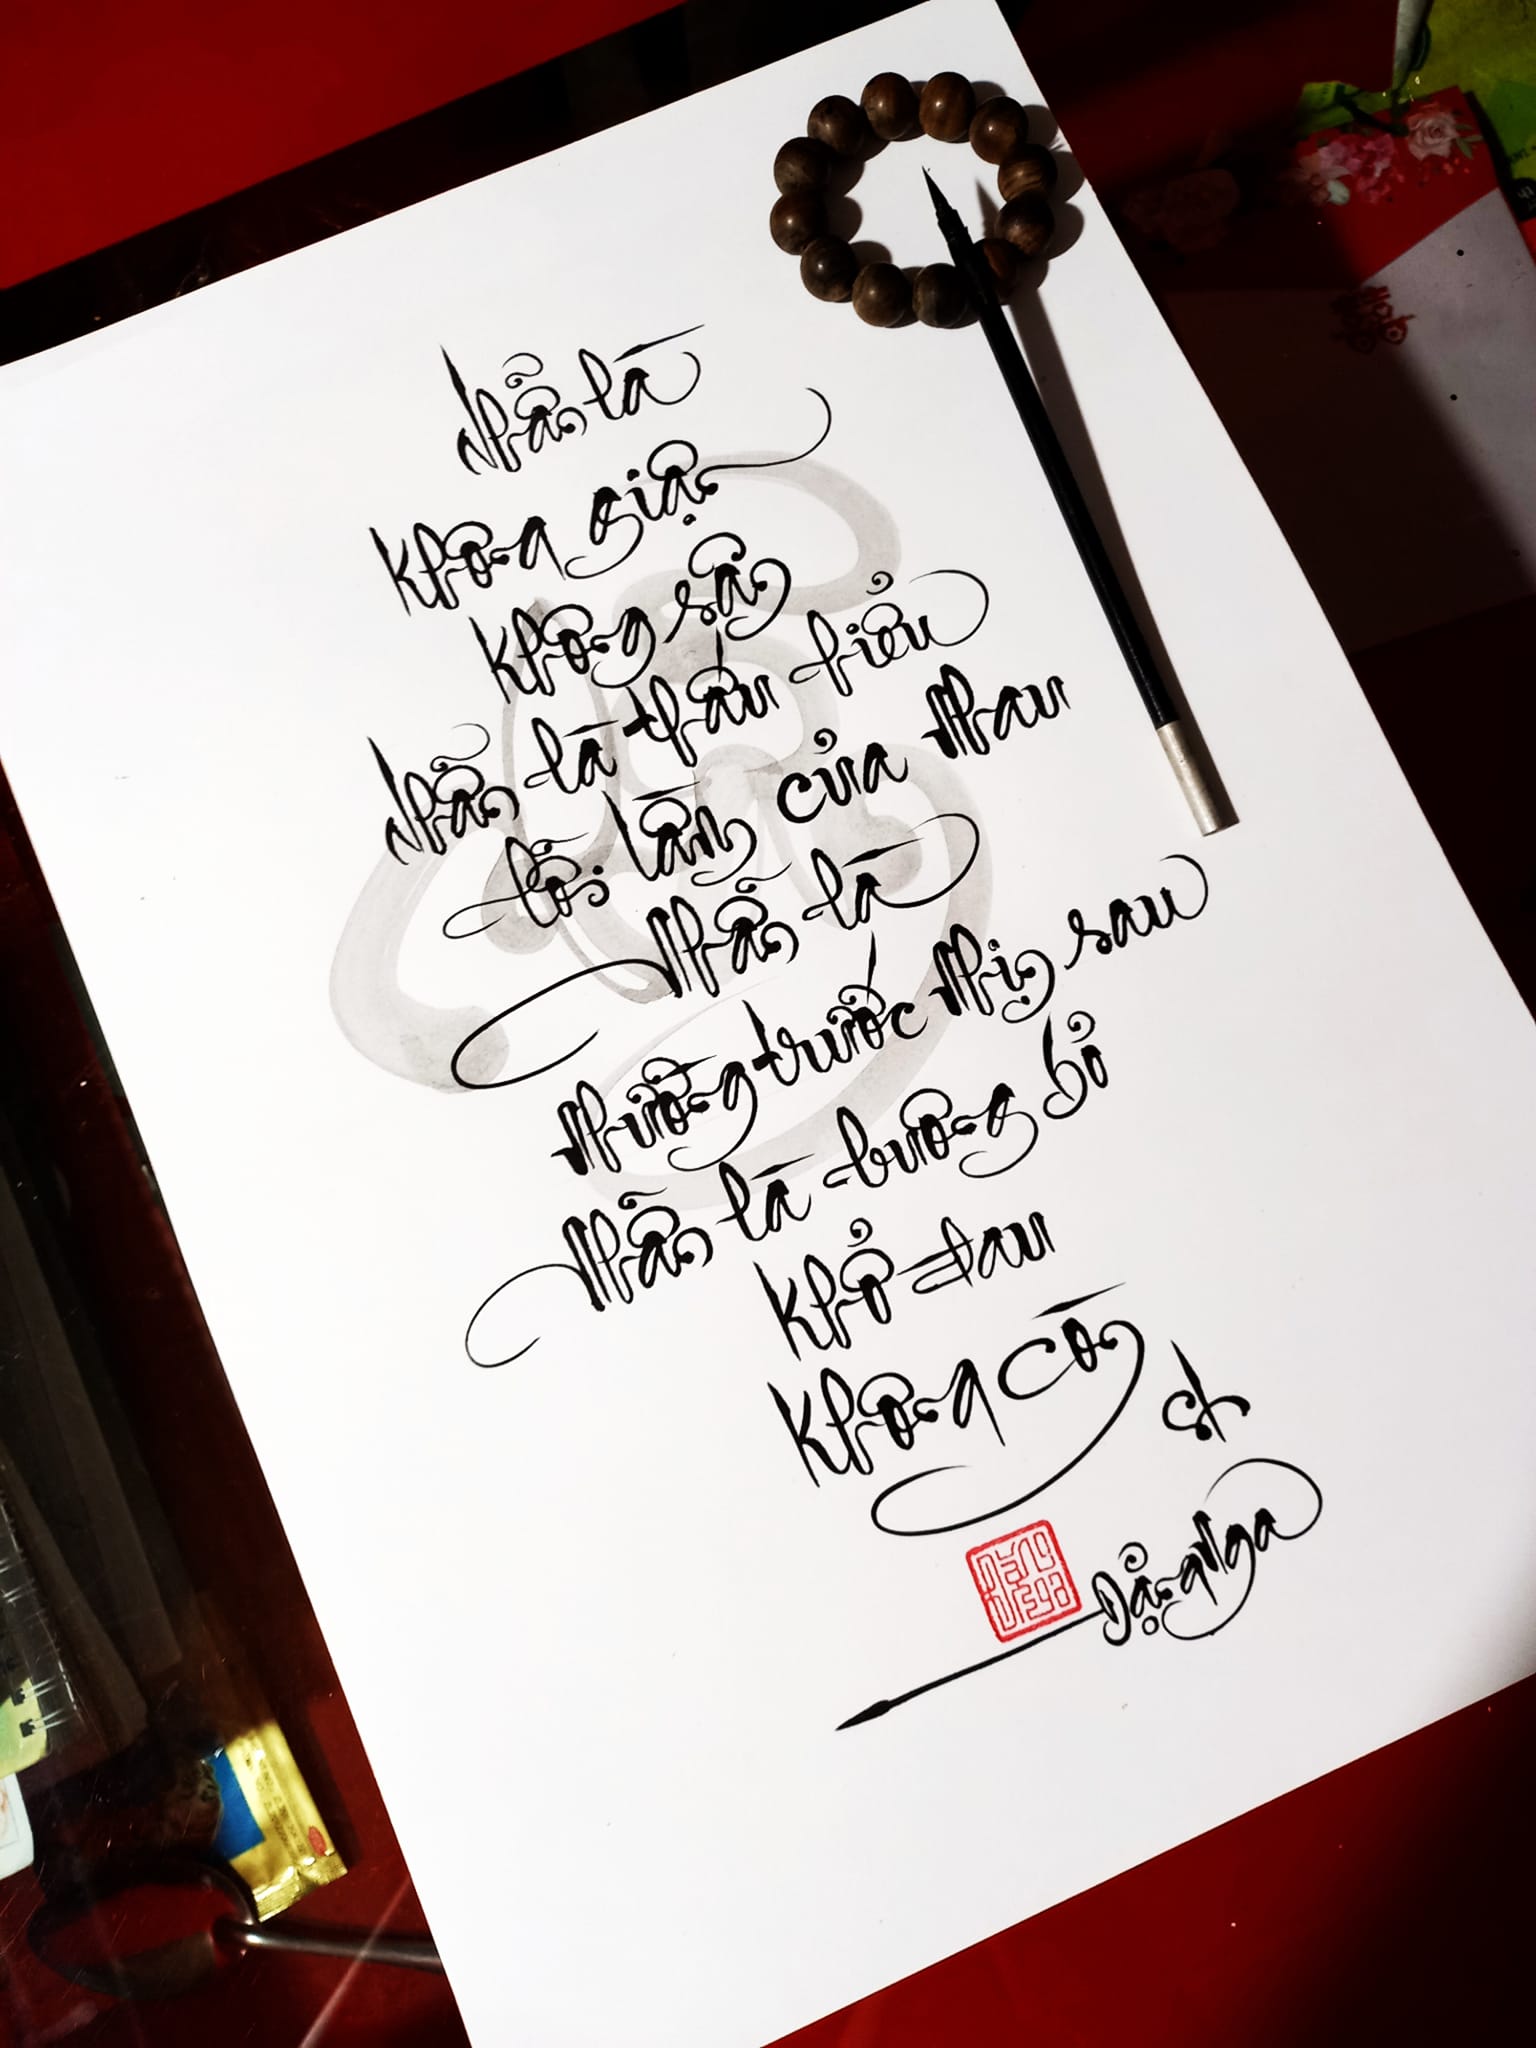 Nhẫn là
Không giận
Không sân
Nhẫn là thấu hiểu
lỗi lầm của nhau
Nhẫn là
Nhường trước Nhịn sau
Nhẫn là buông bỏ
Khổ đau
Không còn
Đặng Nga